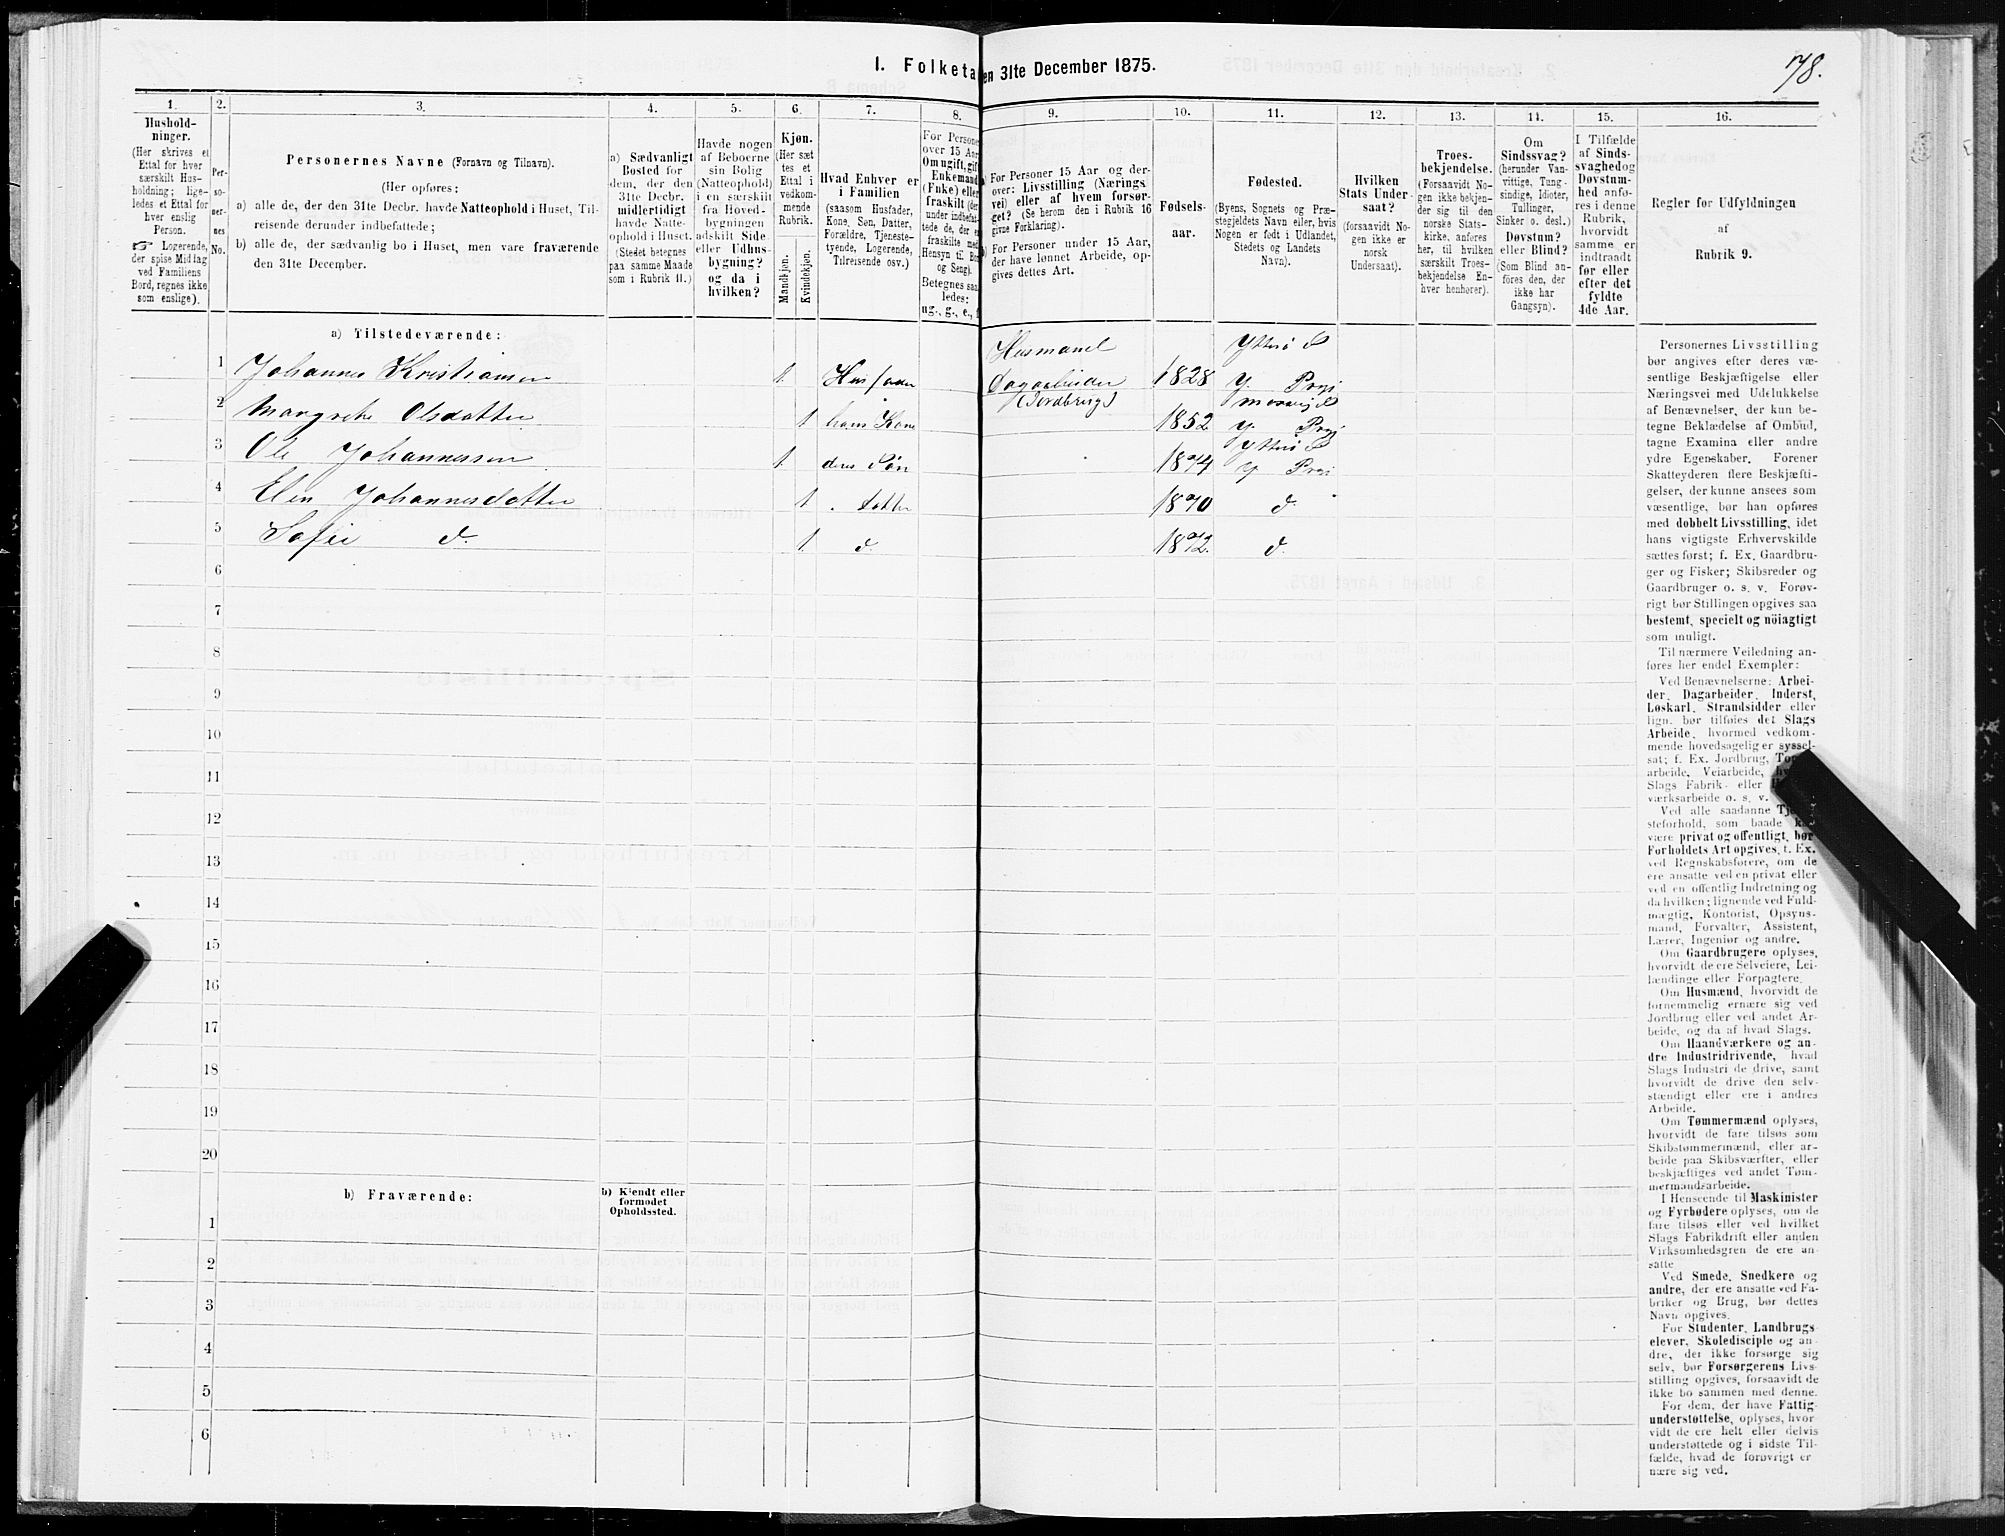 78.
I. Folketa
en 31te December 1875.
1.
2.
3.
4.
5.
6.
7.
8.
9.
10.
11.
12.
13.
14.
15.
16.
Hushold-
ninger.
(Her skrives et
Ettal for hver
særskilt Hus-
holdning; lige-
ledes et Ettal for
hver enslig
Person.
☞ Logerende,
der spise Middag
ved Familiens
Bord, regnes ikke
som enslige).
Per-
so-
ner-
nes
No.
Personernes Navne (Fornavn og Tilnavn).
(Her opføres:
a) alle de, der den 31te Decbr. havde Natteophold i Huset, Til-
reisende derunder indbefattede;
b) alle de, der sædvanlig bo i Huset, men vare fraværende
den 31te December.
a) Sædvanligt
Bosted for
dem, der den
31te Decbr.
midlertidigt
havde Natte-
ophold i Huset.
(Stedet betegnes
paa samme Maade
som i Rubrik 11.)
Havde nogen
af Beboerne
sin Bolig
(Natteophold)
i en særskilt
fra Hoved-
bygningen
adskilt Side-
eller Udhus-
bygning?
og da i
hvilken?
Kjøn.
(Her sæt
tes et
Ettal i
vedkom-
mende
Rubrik.
Mandkjøn.
Kvindekjøn.
Hvad Enhver er
i Familien
(saasom Husfader,
Kone, Søn, Datter,
Forældre, Tjeneste-
tyende, Logerende,
Tilreisende osv.)
For Persone
over 15 Aar
Om ugift, gift
Enkemand
(Enke) eller
fraskilt (der
under indbefat-
tede de, der er
fraskilte med
Hensyn til Bor
og Seng).
Betegnes saa
ledes:
ug., g., e., f
a) For Personer 15 Aar og der-
over: Livsstilling (Nærings
vei) eller af hvem forsør-
get? (Se herom den i Rubrik 16
givne Forklaring).
b) For Personer under 15 Aar,
der have lønnet Arbeide, op-
gives dettes Art.
Fødsels-
aar.
Fødested.
(Byens, Sognets og Præ-
stegjeldets Navn eller, hvis
Nogen er født i Udlandet,
Stedets og Landets
Navn).
Hvilken
Stats Under-
saat?
(forsaavidt No-
gen ikke er
norsk
Undersaat).
Troes-
bekjendelse.
(Forsaavidt No-
gen ikke bekjen-
der sig til den
norske Stats-
kirke, anføres
her, til hvilken
særskilt Troes-
bekjendelse En-
hver henhører).
Om
Sindssvag?
(herunder Van-
vittige, Tung-
sindige, Idioter,
Tullinger,
Sinker o. desl.)
Døvstum?
eller Blind?
(Som Blind an-
føres den, der
ikke har
Gangsyn).
I Tilfælde
af Sinds-
svaghed og
Døvstum-
hed anfø-
res i denne
Rubrik,
hvorvidt
samme er
indtraadt
før eller
efter det
fyldte
4de Aar.
Regler for Udfyldningen
af
Rubrik 9.
a) Tilstedeværende:
1 Johannes Kristiansen 1 Husfader Husmand Dagarbeider (Jordbrug) 1828 Ytterø S Y. Prgj
2 Margrethe Olsdatter 1 hans Kone 1852 Mosvig S Y. Prgj
3 Ole Johannessen 1 deres Søn 1874 Ytterø S Y Prgj
4 Elen Johannesdatter 1 " Datter 1870 d.
5 Sofie d. 1 d. 1872. d.
6
7
8
9
10
11
12
13
14
15
16
17
18
19
20
b) Fraværende:
b) Kjendt eller
formodet
Opholdssted.
1
2
3
4
5
6
Personernes Livsstilling
bør angives efter deres væ-
sentlige Beskjæftigelse eller
Næringsvei med Udelukkelse
af Benævnelser, der kun be-
tegne Beklædelse af Ombud,
tagne Examina eller andre
ydre Egenskaber. Forener
Skatteyderen flere Beskjæfti-
gelser, der kunne ansees som
væsentlige, bør han opføres
med dobbelt Livsstilling, idet
hans vigtigste Erhvervskilde
sættes først; f. Ex. Gaardbru-
ger og Fisker; Skibsreder og
Gaardbruger o. s. v. Forøv-
rigt bør Stillingen opgives saa
bestemt, specielt og nöiagtigt
som muligt.
Til nærmere Veiledning an-
føres her endel Exempler:
Ved Benævnelserne: Arbei-
der, Dagarbeider, Inderst,
Løskarl, Strandsidder eller
lign. bør tilføies det Slags
Arbeide, hvormed vedkom-
mende hovedsagelig er syssel-
sat; f. Ex. Jordbrug,
arbeide, Veiarbeide,
Slags Fabrik- eller
værksarbeide o. s. v.
Ved alle saadanne
steforhold, som baade
være privat og offentligt, bør
Forholdets Art opgives, f. Ex.
ved Regnskabsførere, om de
ere ansatte ved en privat eller
ved en offentlig Indretning og
da hvilken; lignende ved Fuld-
mægtig, Kontorist, Opsyns-
mand, Forvalter, Assistent,
Lærer, Ingeniør og andre.
Om Gaardbrugere oplyses,
hvorvidt de ere Selveiere, Lei-
lændinge eller Forpagtere.
Om Husmænd, hvorvidt de
fornemmelig ernære sig ved
Jordbrug eller ved andet Ar-
beide, og da af hvad Slags.
Om Haandværkere og an-
dre Industridrivende, hvad
Slags Industri de drive, samt
hvorvidt de drive den selv-
stændigt eller ere i andres
Arbeide.
Om Tømmermænd oplyses,
hvorvidt de fare tilsøs som
Skibstømmermænd, eller ar-
beide paa Skibsværfter, eller
beskjæftiges ved andet Tøm-
mermandsarbeide.
I Henseende til Maskinister
og Fyrbødere oplyses, om de
fare tilsøs eller ved hvilket
Slags Fabrikdrift eller anden
Virksomhedsgren de ere an-
satte
Ved Smede, Snedkere og
andre, der ere ansatte ved Fa-
briker og Brug, bør dettes
Navn opgives.
For Studenter, Landbrugs-
elever, Skoledisciple og an-
dre, der ikke forsørge sig
selv, bør Forsørgerens Livs-
stilling opgives, forsaavidt de
ikke bo sammen med denne.
For dem, der have Fattig-
understøttelse, oplyses, hvor-
vidt de ere helt eller delvis
understøttede og i sidste Til-
fælde, hvad de forøvrigt er
nære sig ved.